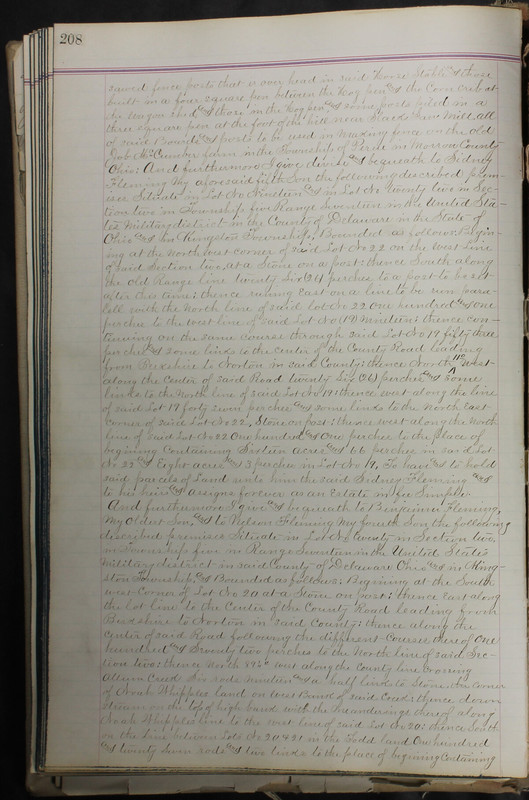 208
sawed fence posts that is over head in said Horse Stable & those
built in a four square pen between the Hog pen & the Corn Crib at
the wagon shed & those in the Hog pen & some posts piled in a
three square pen at the foot of the hill near Slack Saw Mill, all
of said Boards & posts to be used in making fence on the old
Job farm in the Township of Peru in Morrow County
Ohio: And furthermore I give devise & bequeath to Sidney
Fleming my aforesaid fifth Son the following described prem-
ises Situate in Lot No Nineteen & in Lot No twenty two in Sec-
tion two in Township five Range Seventeen in the United Sta-
tes Military district in the County of Delaware in the State of
Ohio & in Kingston Township; Bounded as follows: Begin-
ing at the North west corner of said Lot No 22 on the West Line
of said Section two, at a Stone on a post: thence South along
the old Range line twenty Six (26) perches to a post to be set
after this time: thence runing East on a line to be run para-
lell with the North line of said lot No 22 One hundred & one
perches to the West line of said Lot No (19) Nineteen: thence con-
tinuing on the same course through said Lot No 19 fifty three
perches & some links to the center of the County Road leading
from Berkshire to Norton in said County: thence North 11° West
along the Center of said Road twenty Six (26) perches & Some
links to the North line of said Lot No 19: thence west along the line
of said Lot 19 forty seven perches & some links to the North East
corner of said Lot No 22, Stone on post: thence west along the North
line of said Lot No 22 One hundred & One perches to the place of
begining Containing Sixteen acres & 66 perches in said Lot
No 22 & Eight acres & 3 perches in Lot No 19. To have & to hold
said parcels of Land unto him the said Sidney Fleming &
to his heirs & assigns forever as an Estate in fee Simple
And furthermore I give & bequeath to Benjamin Fleming,
My Oldest Son, & to Nelson Fleming My fourth Son the following
described premises Situate in Lot No twenty in Section two
in Township five in Range Seventeen in the United States
Military district in said County of Delaware Ohio & in King-
ston Township, & Bounded as follows: Begining at the South
west Corner of Lot No 20 at a Stone on post: thence East along
the lot line to the Center of the County Road leading from
Berkshire to Norton in said County: thence along the
center of said Road following the different Courses thereof One
hundred & Seventy two perches to the North line of said Sec-
tion two: thence North west along the County line crossing
Allum Creek Six rods Nineteen & a half links to Stone in corner
of Noah Whipples land on West Bank of said Creek: thence down
Stream on the top of high bank with the meanderings thereof along
Noah Whipples line to the west line of said Lot No 20: thence South
on the line between Lots No 20 & 21 in the Todd land One hundred
& twenty Seven rods & two links to the place of begining Containing